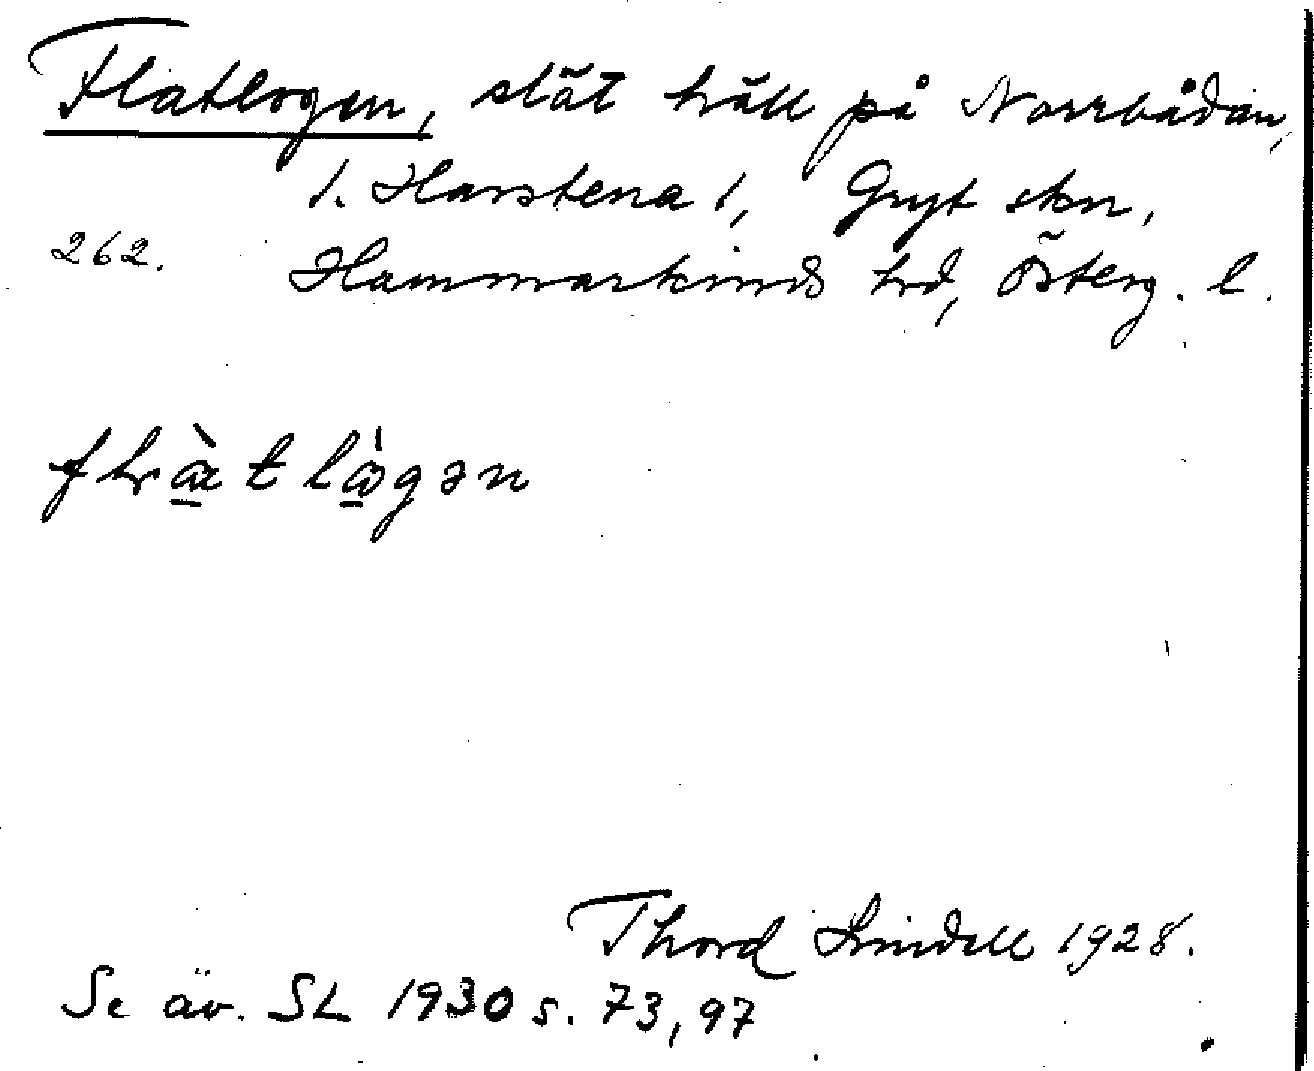 Flatlogen, slät häll på Norrbådan,
1. Harstena 1, Gryt skn,
262. Hammarkinds hd, Österg. l.
Thord Lindell 1928.
Se äv. SL 1930 s. 73, 97